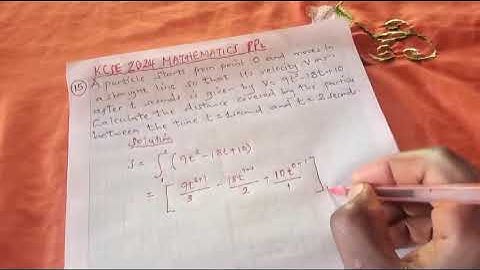 KCSE 2024 MATHEMATICS PP2
(15) A particle starts from point O and moves in
a straight line so that its velocity V ms⁻¹
after t seconds is given by V = 9t² - 18t + 10
Calculate the distance covered by the particle
between the time t = 1 second and t = 2 seconds.
Solution
S = ∫ (9t² - 18t + 10)
= [ 9t²⁺¹/3 - 18t¹⁺¹/2 + 10t⁰⁺¹/1 ]